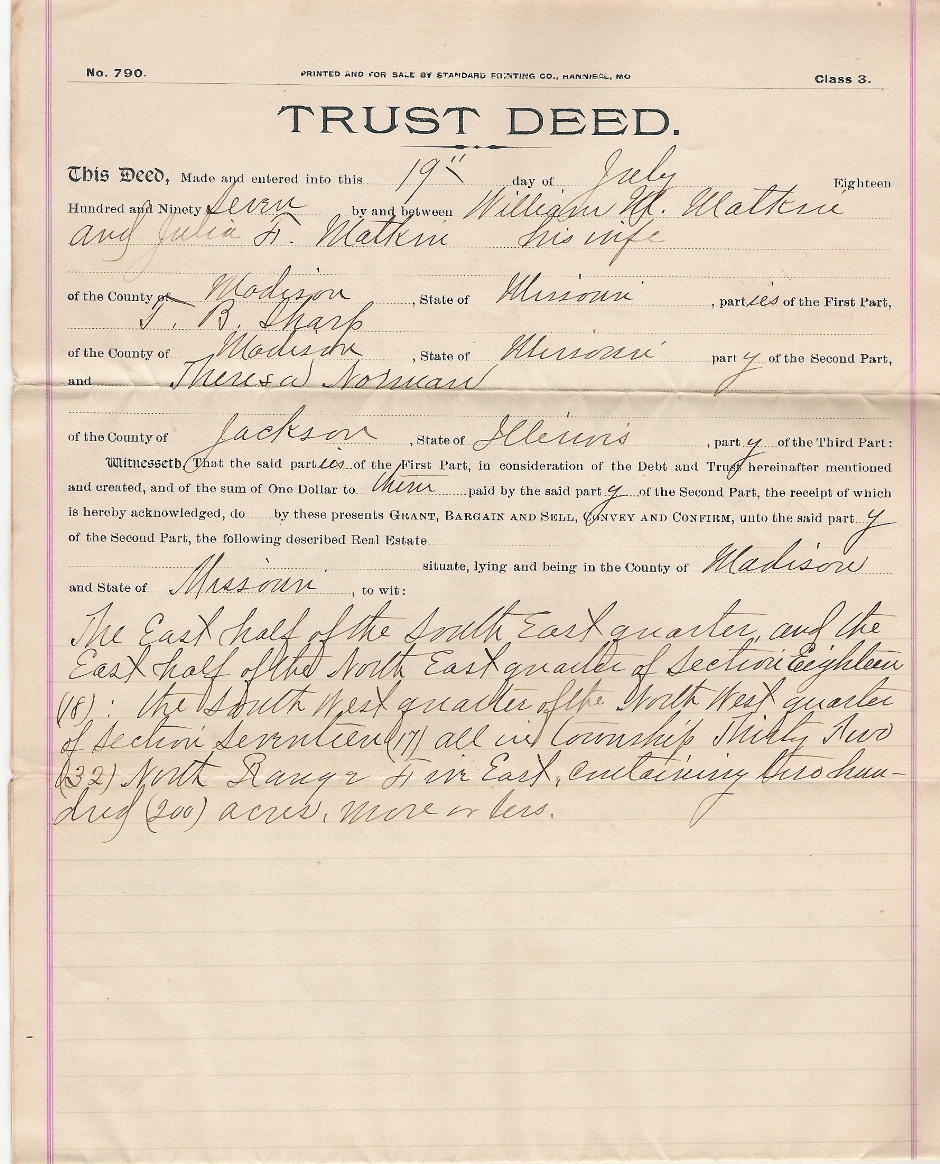 No. 790. PRINTED AND FOR SALE BY STANDARD PRINTING CO., HANNIBAL, MO Class 3.
TRUST DEED.
This Deed, Made and entered into this 19" day of July Eighteen
Hundred and Ninety Seven by and between William M. Matkin
and Julia F. Matkin his wife
of the County of Madison, State of Missouri, parties of the First Part,
T. B. Sharp
of the County of Madison, State of Missouri party of the Second Part,
and Theresa Norman
of the County of Jackson, State of Illinois, party of the Third Part:
Witnesseth, That the said parties of the First Part, in consideration of the Debt and Trust hereinafter mentioned
and created, and of the sum of One Dollar to them paid by the said party of the Second Part, the receipt of which
is hereby acknowledged, do by these presents GRANT, BARGAIN AND SELL, CONVEY AND CONFIRM, unto the said party
of the Second Part, the following described Real Estate
situate, lying and being in the County of Madison
and State of Missouri, to wit:
The East half of the South East quarter, and the
East half of the North East quarter of Section Eighteen
(18): the South West quarter of the North West quarter
of Section Seventeen (17) all in township Thirty Two
(32) North Range Five East, containing two hun-
dred (200) acres, more or less.